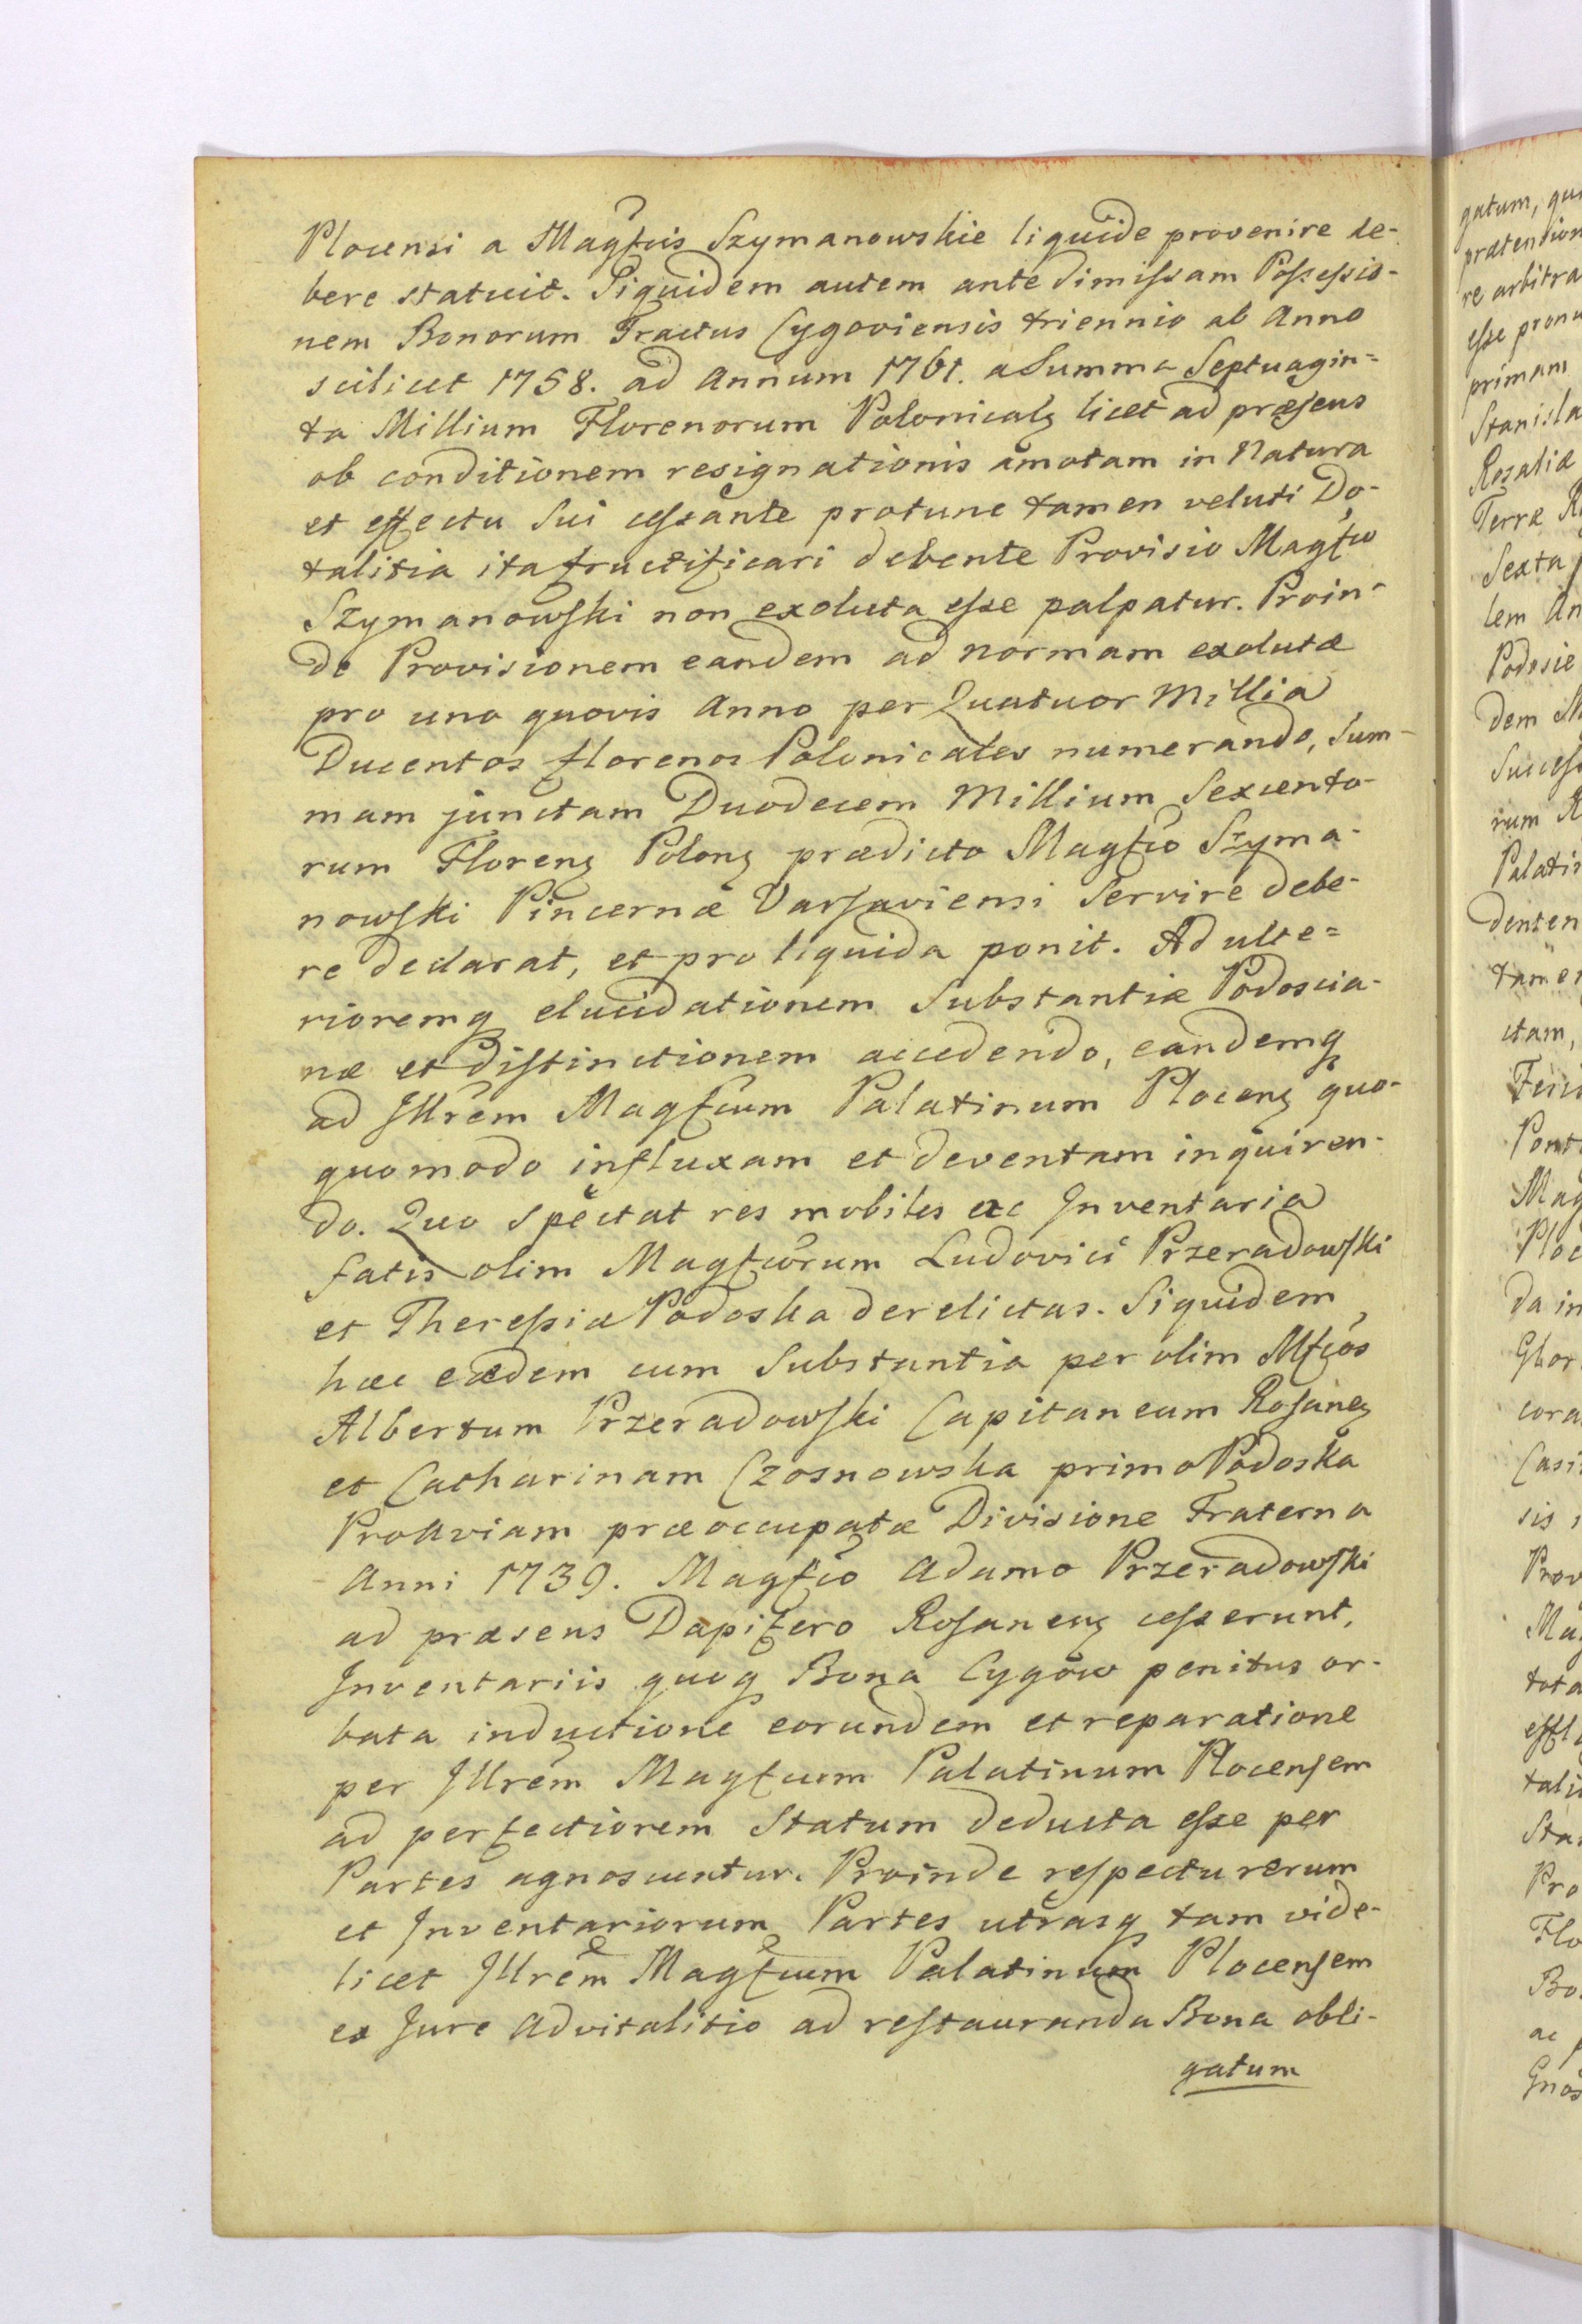 Plocensi a Magfcis Szymanowskie liquide provenire de-
bere statuit. Siquidem autem ante dimissam Possessio-
nem Bonorum Tractus Cygoviensis triennio ab Anno
scilicet 1758. ad Annum 1761. a Summa Septuagin=
ta Millium Florenorum Polonicalz licet ad præsens
ob conditionem resignationis amotam in Natura
et effectu sui cessante protunc tamen veluti Do-
talitia ita fructificari debente Provisio Magfco
Szymanowski non exoluta esse palpatur. Proin-
de Provisionem eandem ad normam exolutæ
pro uno quovis Anno per Quatuor Millia
Ducentos florenos Polonicales numerando, Sum-
mam junctam Duodecem Millium Sexcento-
rum Florenz Polonz prædicto Magfco Szyma-
nowski Pincernæ Varsaviensi Servire debe-
re declarat, et pro liquida ponit. Ad ulte=
rioremq elucidationem Substantiæ Podoscia-
næ et distinctionem accedendo, eandemq
ad Jllrem Magfcum Palatinum Plocenz quo-
quomodo influxam et deventam inquiren-
do. Quo spectat res mobiles ac Jnventaria
fatis olim Magfcorum Ludovici Przeradowski
et Theressiæ Podoska derelictas. Siquidem
hæc eædem cum Substantia per olim Mfcos
Albertum Przeradowski Capitaneum Rosanez
et Catharinam Czosnowska primo Podoska
ProAviam præoccupatæ Divisione Fraterna
Anni 1739. Magfco Adamo Przeradowski
ad præsens Dapifero Rosanenz cesserunt,
Jnventariis quoq Bona Cygow penitus or-
bata inductione eorundem et reparatione
per Jllrem Magfcum Palatinum Plocensem
ad perfectiorem Statum deducta esse per
Partes agnoscuntur. Proinde respectu rerum
et Jnventariorum Partes utrasq tam vide-
licet Jllrem Magfcum Palatinum Plocensem
ex Jure Advitalitio ad restauranda Bona obli-
gatum
gatum,
prætension
re arbitra
esse pronu
primam
Stanisla
Rozaliæ
Terræ
Sexta
lem An
Podosie
dem
Success
rum
Palatin
denten
tamen
ctam,
Pont
Mag
Ploc
da in
Glor
cora
Casi
sis
Prov
Mag
tota
tali
Sta
Pro
Flo
Bo
ac
Gnos